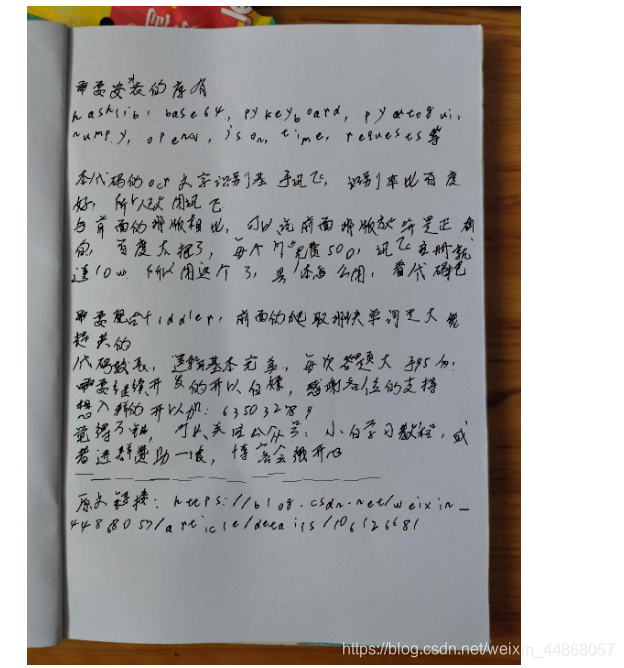 需要安装的库有
hashlib, base64, pykeyboard, pyautogui,
numpy, opencv, json, time, requests等
本代码的ocr文字识别基于讯飞, 识别率比百度
好, 所以改用讯飞
与前面的排版相比, 可以说前面排版放弃是正确
的, 百度太抠了, 每个月免费500, 讯飞注册就
送10w 所以用这个了, 具体怎么用, 看代码吧
需要配合fiddler, 前面的爬取那块单词是大佬
提供的
代码较长, 逻辑基本完善, 每次答题大于95分,
需要继续开发的可以白嫖, 感谢各位的支持
想入群的可以加:
觉得不错, 可以关注公众号: 小白学习教程, 或
者进群赞助一波, 博客会很开心
原文链接: https://blog.csdn.net/weixin_
44868057/article/details/106126681
https://blog.csdn.net/weixin_44868057